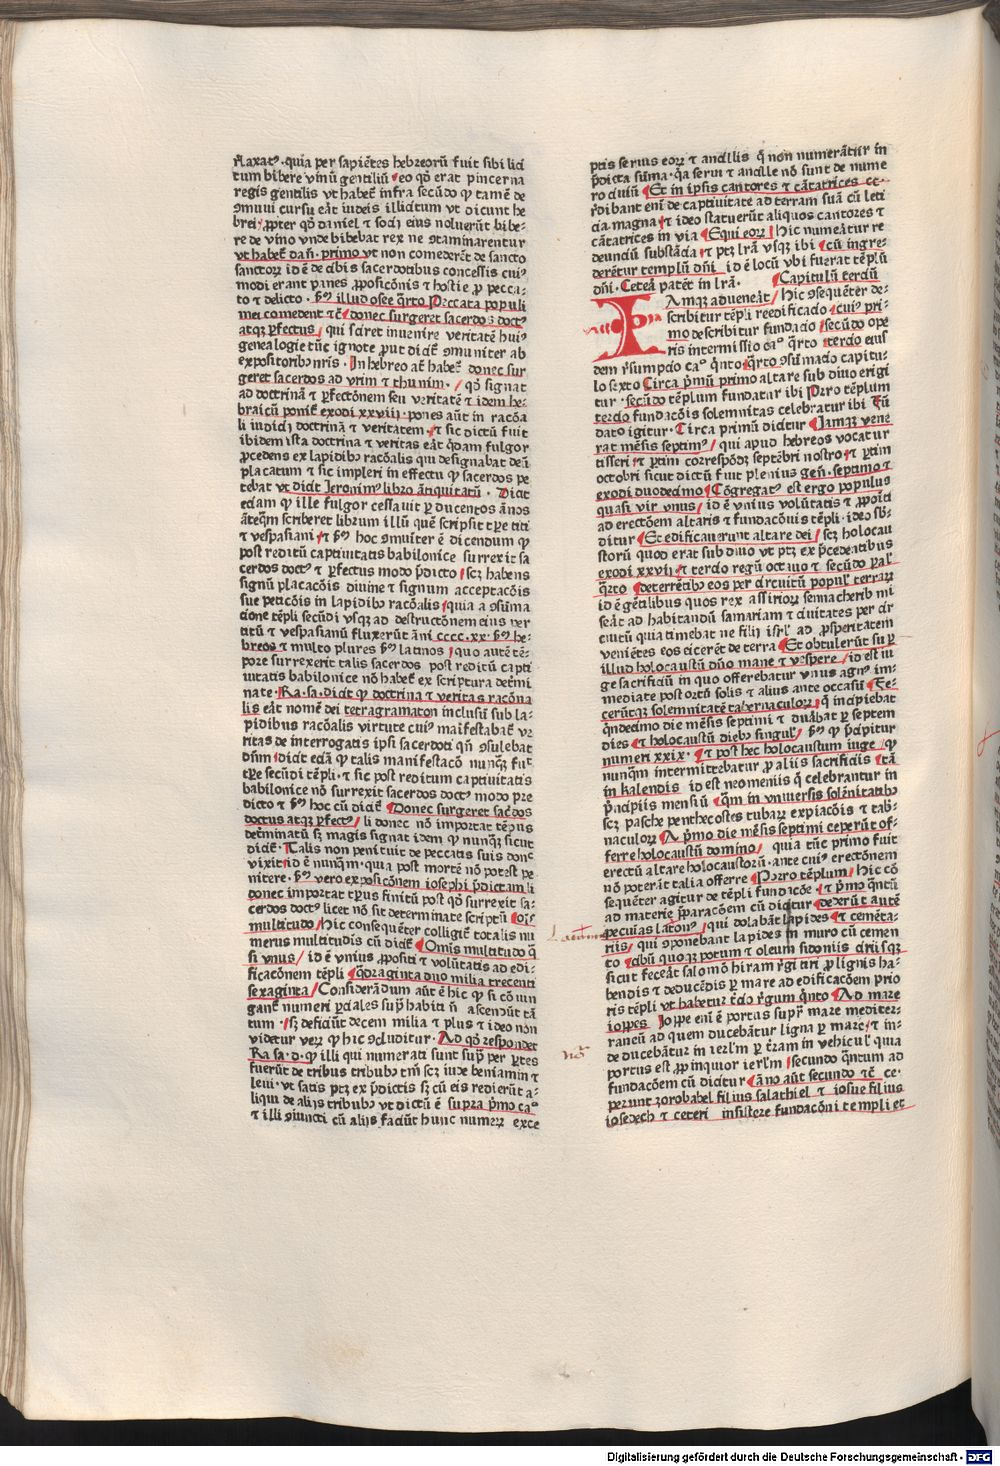 rlaxatꝰ. quia per sapiētes hebreorū fuit sibi lici
tum bibere vinū gentiliū eo qđ erat pincerna
regis gentilis vt habet̄ infra secūdo ꝙ tamē de
ꝯmuni cursu eāt iudeis illicitum vt dicunt he
brei. ꝓpter qđ daniel ⁊ socij eius noluerūt bibe⸗
re de vino vnde bibebat rex ne ꝯtaminarentur
vt habet̄ dañ. primo vt non comederēt de sancto
sanctoꝝ id ē de cibis sacerdotibus concessis cuiꝰ
modi erant panes ꝓposicōnis ⁊ hostie ꝓ pecca⸗
to ⁊ delicto. s̄m illud osee q̄rto Peccata populi
mei comedent ⁊c̄ donec surgeret sacerdos doctꝰ
atqꝫ ꝑfectus, qui sciret inuenire veritatē huiꝰ
genealogie tūc ignote ꝓut dicit̄ ꝯmuniter ab
expositoribꝰ nris. In hebreo at̄ habet̄ donec sur
geret sacerdos ad vrim ⁊ thumim. / qđ signat
ad doctrinā ⁊ ꝑfectōnem seu veritatē ⁊ idem he⸗
braicū ponit̄ exodi xxviii. pones aūt in racōa
li iudicij doctrinā ⁊ veritatem. ⁊ sic dictū fuit
ibidem ista doctrina ⁊ veritas eāt q̄dam fulgor
ꝓcedens ex lapidibꝰ racōalis qui designabat deū
placatum ⁊ sic impleri in effectu ꝙ sacerdos pe
tebat vt dicit Jeronimꝰ libro ātiquitatū. Dicit
eciam ꝙ ille fulgor cessauit ꝑ ducentos ānos
āteq̄m scriberet librum illū quē scripsit tꝑe titi
⁊ vespasiani ⁊ s̄m hoc ꝯmuniter ē dicendum ꝙ
post reditū captiuitatis babilonice surrexit sa
cerdos doctꝰ ⁊ ꝑfectus modo p̄dicto sꝫ habens
signū placacōis diuine ⁊ signum acceptacōis
sue peticōis in lapidibꝰ racōalis quia a ꝯsūma
cione tēpli secūdi vsqꝫ ad destructōnem eius per
titū ⁊ vespasianū fluxerūt āni cccc.xx. s̄m he⸗
breos ⁊ multo plures s̄m latinos quo autē tē⸗
pore surrexerit talis sacerdos post reditū capti
uitatis babilonice nō habet̄ ex scriptura det̄mi
nate. Ra. sa. dicit ꝙ doctrina ⁊ veritas racōna
lis eāt nomē dei tetragramaton inclusū sub la⸗
pidibus racōalis virtute cuiꝰ maifestabat̄ ve
ritas de interrogatis ipsi sacerdoti qn̄ ꝯsulebat
dn̄m dicit eciā ꝙ talis manifestacō nunqꝫ fuit
tꝑe secūdi tēpli. ⁊ sic post reditum captiuitatis
babilonice nō surrexit sacerdos doctꝰ modo pre
dicto ⁊ s̄m hoc cū dicit̄ Donec surgeret sac̄dos
doctus atqꝫ ꝑfectꝰ, li donec nō importat tēpus
det̄minatū sꝫ magis signat idem ꝙ nunqꝫ sicut
dicit̄. Talis non penituit de peccatis suis donc̄
vixit id ē nunq̄m. quia post mortē nō potest pe
nitere. s̄m vero exposicōnem iosephi p̄dictam li
donec importat tp̄us finitū post qđ surrexit sa⸗
cerdos doctꝰ licet nō sit determinate scriptū Oīs
multitudo, hic consequēter colligit̄ totalis nu
merus multitudis cū dicit̄ Omīs multitudo q̄
si vnus/ id ē vnius ꝓpositi ⁊ volūtatis ad edi⸗
ficacōnem tēpli Qdraginta duo milia trecenti
sexaginta/ Considerādum aūt ē hic ꝙ si cōiun
gant̄ numeri ꝑciales sup̄ habiti n̄ ascendūt tā
tum. sꝫ deficiūt decem milia ⁊ plus ⁊ ideo non
videtur verū ꝙ hic ꝯcluditur. Ad qđ respondet
Ra sa. d. ꝙ illi qui numerati sunt sup̄ per ꝑtes
fuerūt de tribus tribubꝰ tm̄ sꝫ iude beniamin ⁊
leui. vt satis ptꝫ ex p̄dictis sꝫ cū eis redierūt a⸗
liqui de alijs tribubꝰ vt dictū ē supra p̄mo caᵒ
⁊ illi ꝯiuncti cū alijs faciūt hunc numeꝝ exce
ptis seruis eoꝝ ⁊ ancillis q̄ non numerātur in
p̄dicta sūma. q̄a serui ⁊ ancille nō sunt de nume
ro ciuiū Et in ipsis cantores ⁊ cātatrices cc.
rdibant eni de captiuitate ad terram suā cū leti
cia magna ⁊ ideo statuerūt aliquos cantores ⁊
cātatrices in via Equi eoꝝ hic numeātur re
deunciū substācia ⁊ ptꝫ lrā vsqꝫ ibi cū ingre⸗
derētur templū dn̄i id ē locū vbi fuerat tēplū
dn̄i. Cetea patēt in lrā. Capitulū terciū
Amqꝫ aduenēāt/ hic ꝯsequēter de⸗
scribitur tēpli reedificacio cuiꝰ pri⸗
mo describitur fundacio secūdo ope
ris intermissio caᵒ q̄rto tercio eius
dem r̄sumpcio caᵒ q̄nto q̄rto ꝯsūmacio capitu⸗
lo sexto Circa p̄mū primo altare sub diuo erigi
tur. secūdo templum fundatur ibi Porro tēplum
tercio fundacōis solemnitas celebratur ibi Fū
datᵒ igitur. Circa primū dicitur Jamqꝫ vene
rat mēsis septimꝰ/ qui apud hebreos vocatur
tisseri ⁊ ꝑtim correspōdꝫ septēbri nostro ⁊ ꝑtim
octobri sicut dictū fuit plenius gen̄. septimo ⁊
exodi duodecimo Cōgregatꝰ est ergo populus
quasi vir vnus/ id ē vnius volūtatis ⁊ ꝓpoiti
ad erectōem altaris ⁊ fundacōnis tēpli. ideo sb̄⸗
ditur Et edificauerunt altare dei/ sꝫ holocau
storū quod erat sub diuo vt ptꝫ ex p̄cedentibus
exodi xxvii ⁊ tercio regū octauo ⁊ secūdo pal̄
q̄rto deterrētibꝰ eos per circuitū populꝰ terraꝝ
id ē gētilibus quos rex assirioꝝ sennacherib mi
seāt ad habitandū samariam ⁊ ciuitates per cir
cuitū quia timebat ne filij isrl̄ ad ꝓsperitatem
veniētes eos eicerēt de terra Et obtulerūt su ꝑ
illud holocaustū dn̄o mane ⁊ vespere/ id est iu
ge sacrificiū in quo offerebatur vnus agnꝰ im⸗
mediate post ortū solis ⁊ alius ante occasū Fe⸗
cerūtqꝫ solemnitatē tabernaculoꝝ q̄ incipiebat
q̄ndecimo die mēsis septimi ⁊ durābat ꝑ septem
dies ⁊ holocaustū diebꝰ singulꝭ/ s̄m ꝙ p̄cipitur
numeri xxix. ⁊ post hec holocaustum iuge/ ꝙ
nunq̄m intermittebatur ꝓ alijs sacrificiis tā
in kalendis id est neomenijs q̄ celebrantur in
p̄ncipijs mensiū q̄m in vniuersis solēnitatibꝰ
sꝫ pasche penthecostes tubaꝝ expiacōis ⁊ tab̄⸗
naculoꝝ A p̄mo die mēsis septimi ceperūt of⸗
ferre holocaustū domino/ quia tūc primo fuit
erectū altare holocaustorū. ante cuiꝰ erectōnem
nō poterāt talia offerre Porro tēplum/ hic cō
sequēter agitur de tēpli fundacōe. ⁊ p̄mo q̄ntū
ad materie p̄paracōem cū dicitur dederūt autē
pecuias latōiꝰ qui dolabāt lapides ⁊ cemēta⸗
rijs, qui ꝯponebant lapides in muro cū cemen
to cibū quoqꝫ potum ⁊ oleum sidonijs tirijsqꝫ
sicut feceāt salomō hiram r̄gi tiri ꝓ lignis ha⸗
bendis ⁊ deducēdis ꝑ mare ad edificacōem prio
ris tēpli vt habetur t̄cio r̄gum q̄nto Ad mare
ioppes Joppe eni ē portus supr̄ mare mediter⸗
raneū ad quem ducebātur ligna ꝑ mare ⁊ in⸗
de ducebātur in ierl̄m ꝑ t̄ram in vehiculꝭ quia
portus est ꝓpinquior ierl̄m secundo q̄ntum ad
fundacōem cū dicitur āno aūt secundo ⁊c̄ ce⸗
perunt zorobabel filius salathiel ⁊ iosue filius
iosedech ⁊ ceteri insistere fundacōni templi et
Digitalisierung gefördert durch die Deutsche Forschungsgemeinschaft - DFG